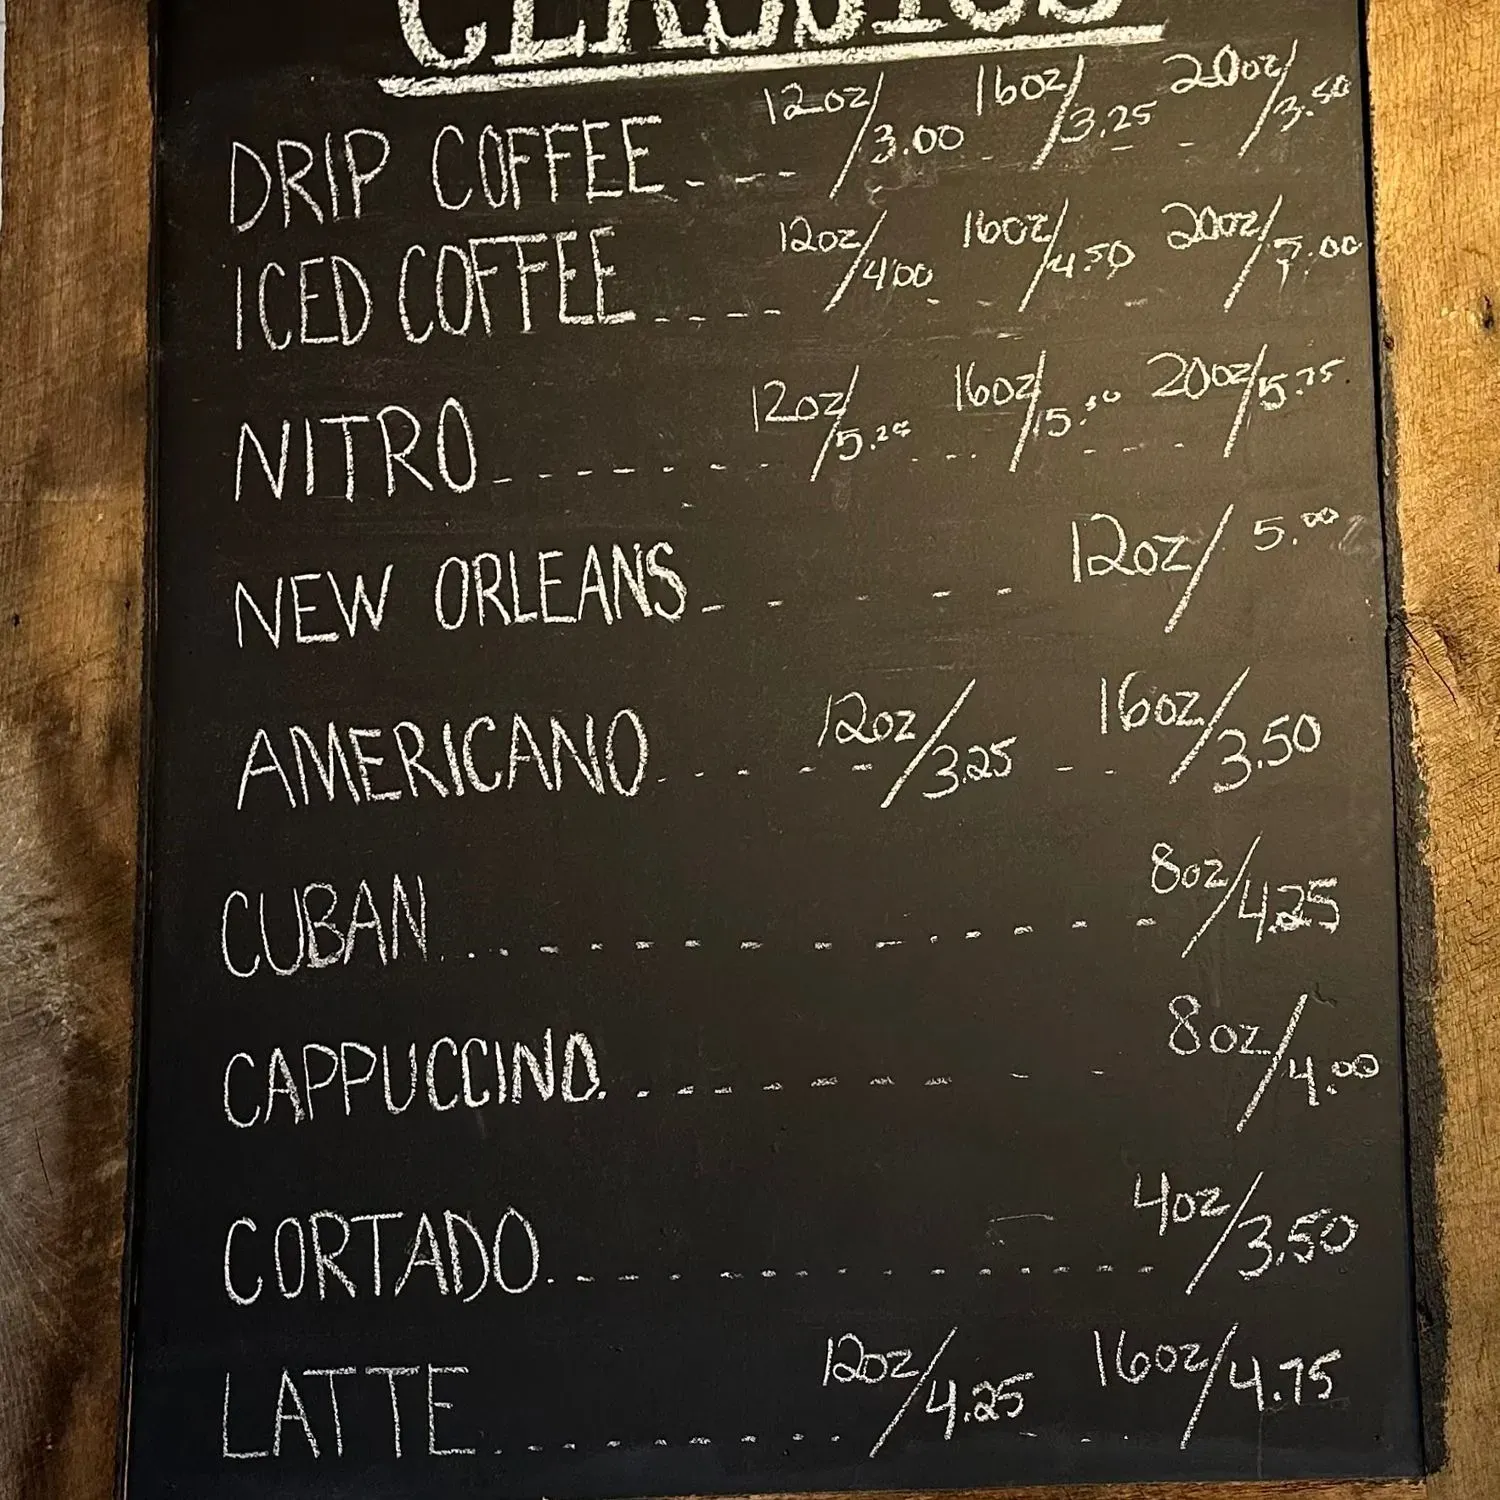 CLASSICS
DRIP COFFEE ---- 12oz/3.00 16oz/3.25 20oz/3.50
ICED COFFEE ---- 12oz/4.00 16oz/4.50 20oz/5.00
NITRO ------- 12oz/5.25 16oz/5.50 20oz/5.75
NEW ORLEANS ----- 12oz/5.00
AMERICANO ----- 12oz/3.25 -- 16oz/3.50
CUBAN ------------- 8oz/4.25
CAPPUCCINO --------- 8oz/4.00
CORTADO -------------- 4oz/3.50
LATTE --------- 12oz/4.25 -- 16oz/4.75